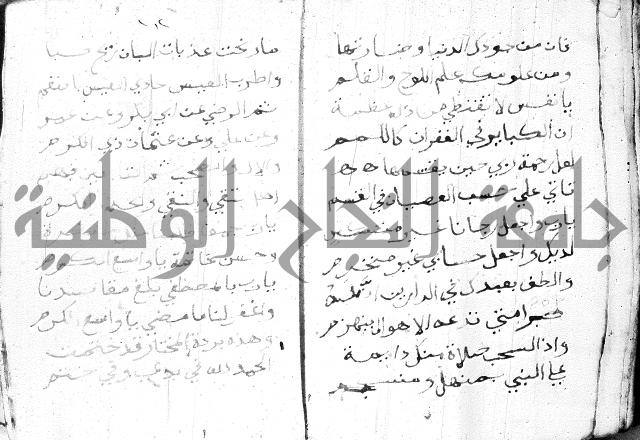 فان من جودك الدنيا وضرتها
ومن علومك علم اللوح والقلم
يا نفس لا تقنطي من زلة عظمت
ان الكبائر في الغفران كاللمم
لعل رحمة ربي حين يقسمها
تاتي علي حسب العصيان في القسم
يارب واجعل رجائي غير منعكس
لديك واجعل حسابي غير منخرم
والطف بعبدك في الدارين ان له
صبرا متي تدعه الاهوال ينهزم
واذن لسحب صلاة منك دايمة
علي النبي بمنهل ومنسجم
١٠٢
ما رنحت عذبات البان ريح صبا
واطرب العيس حادي العيس بالنغم
ثم الرضي عن ابي بكر وعن عمر
وعن علي وعن عثمان ذي الكرم
والال والصحب ثم التابعين فهم
اهل التقي والنقي والحلم والكرم
يارب بالمصطفي بلغ مقاصدنا
واغفر لنا ما مضي يا واسع الكرم
وهذه بردة المختار قد ختمت
الحمد لله في بدء وفي ختم
جامعة النجاح الوطنية